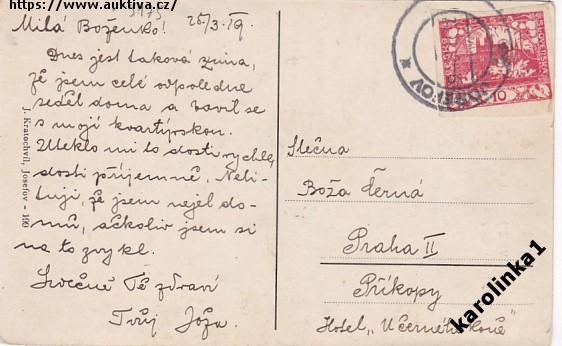 https://www.auktiva.cz/
25/3.19.
Milá Boženko!
Dnes jest taková zima,
že jsem celé odpoledne
seděl doma a bavil se
s mojí kvartýrskou.
Uteklo mi to dosti rychle,
dosti příjemně. Neli-
tuji, že jsem nejel do-
mů, ačkoliv jsem si
na to zvykl.
Srdečně Tě zdraví
Tvůj Jóža.
J. Kratochvíl, Josefov - 100
Slečna
Boža Černá
Praha II
Příkopy
Hotel „U černého koně"
JOSEFOV
SLOVENSKÁ
10
karolinka1